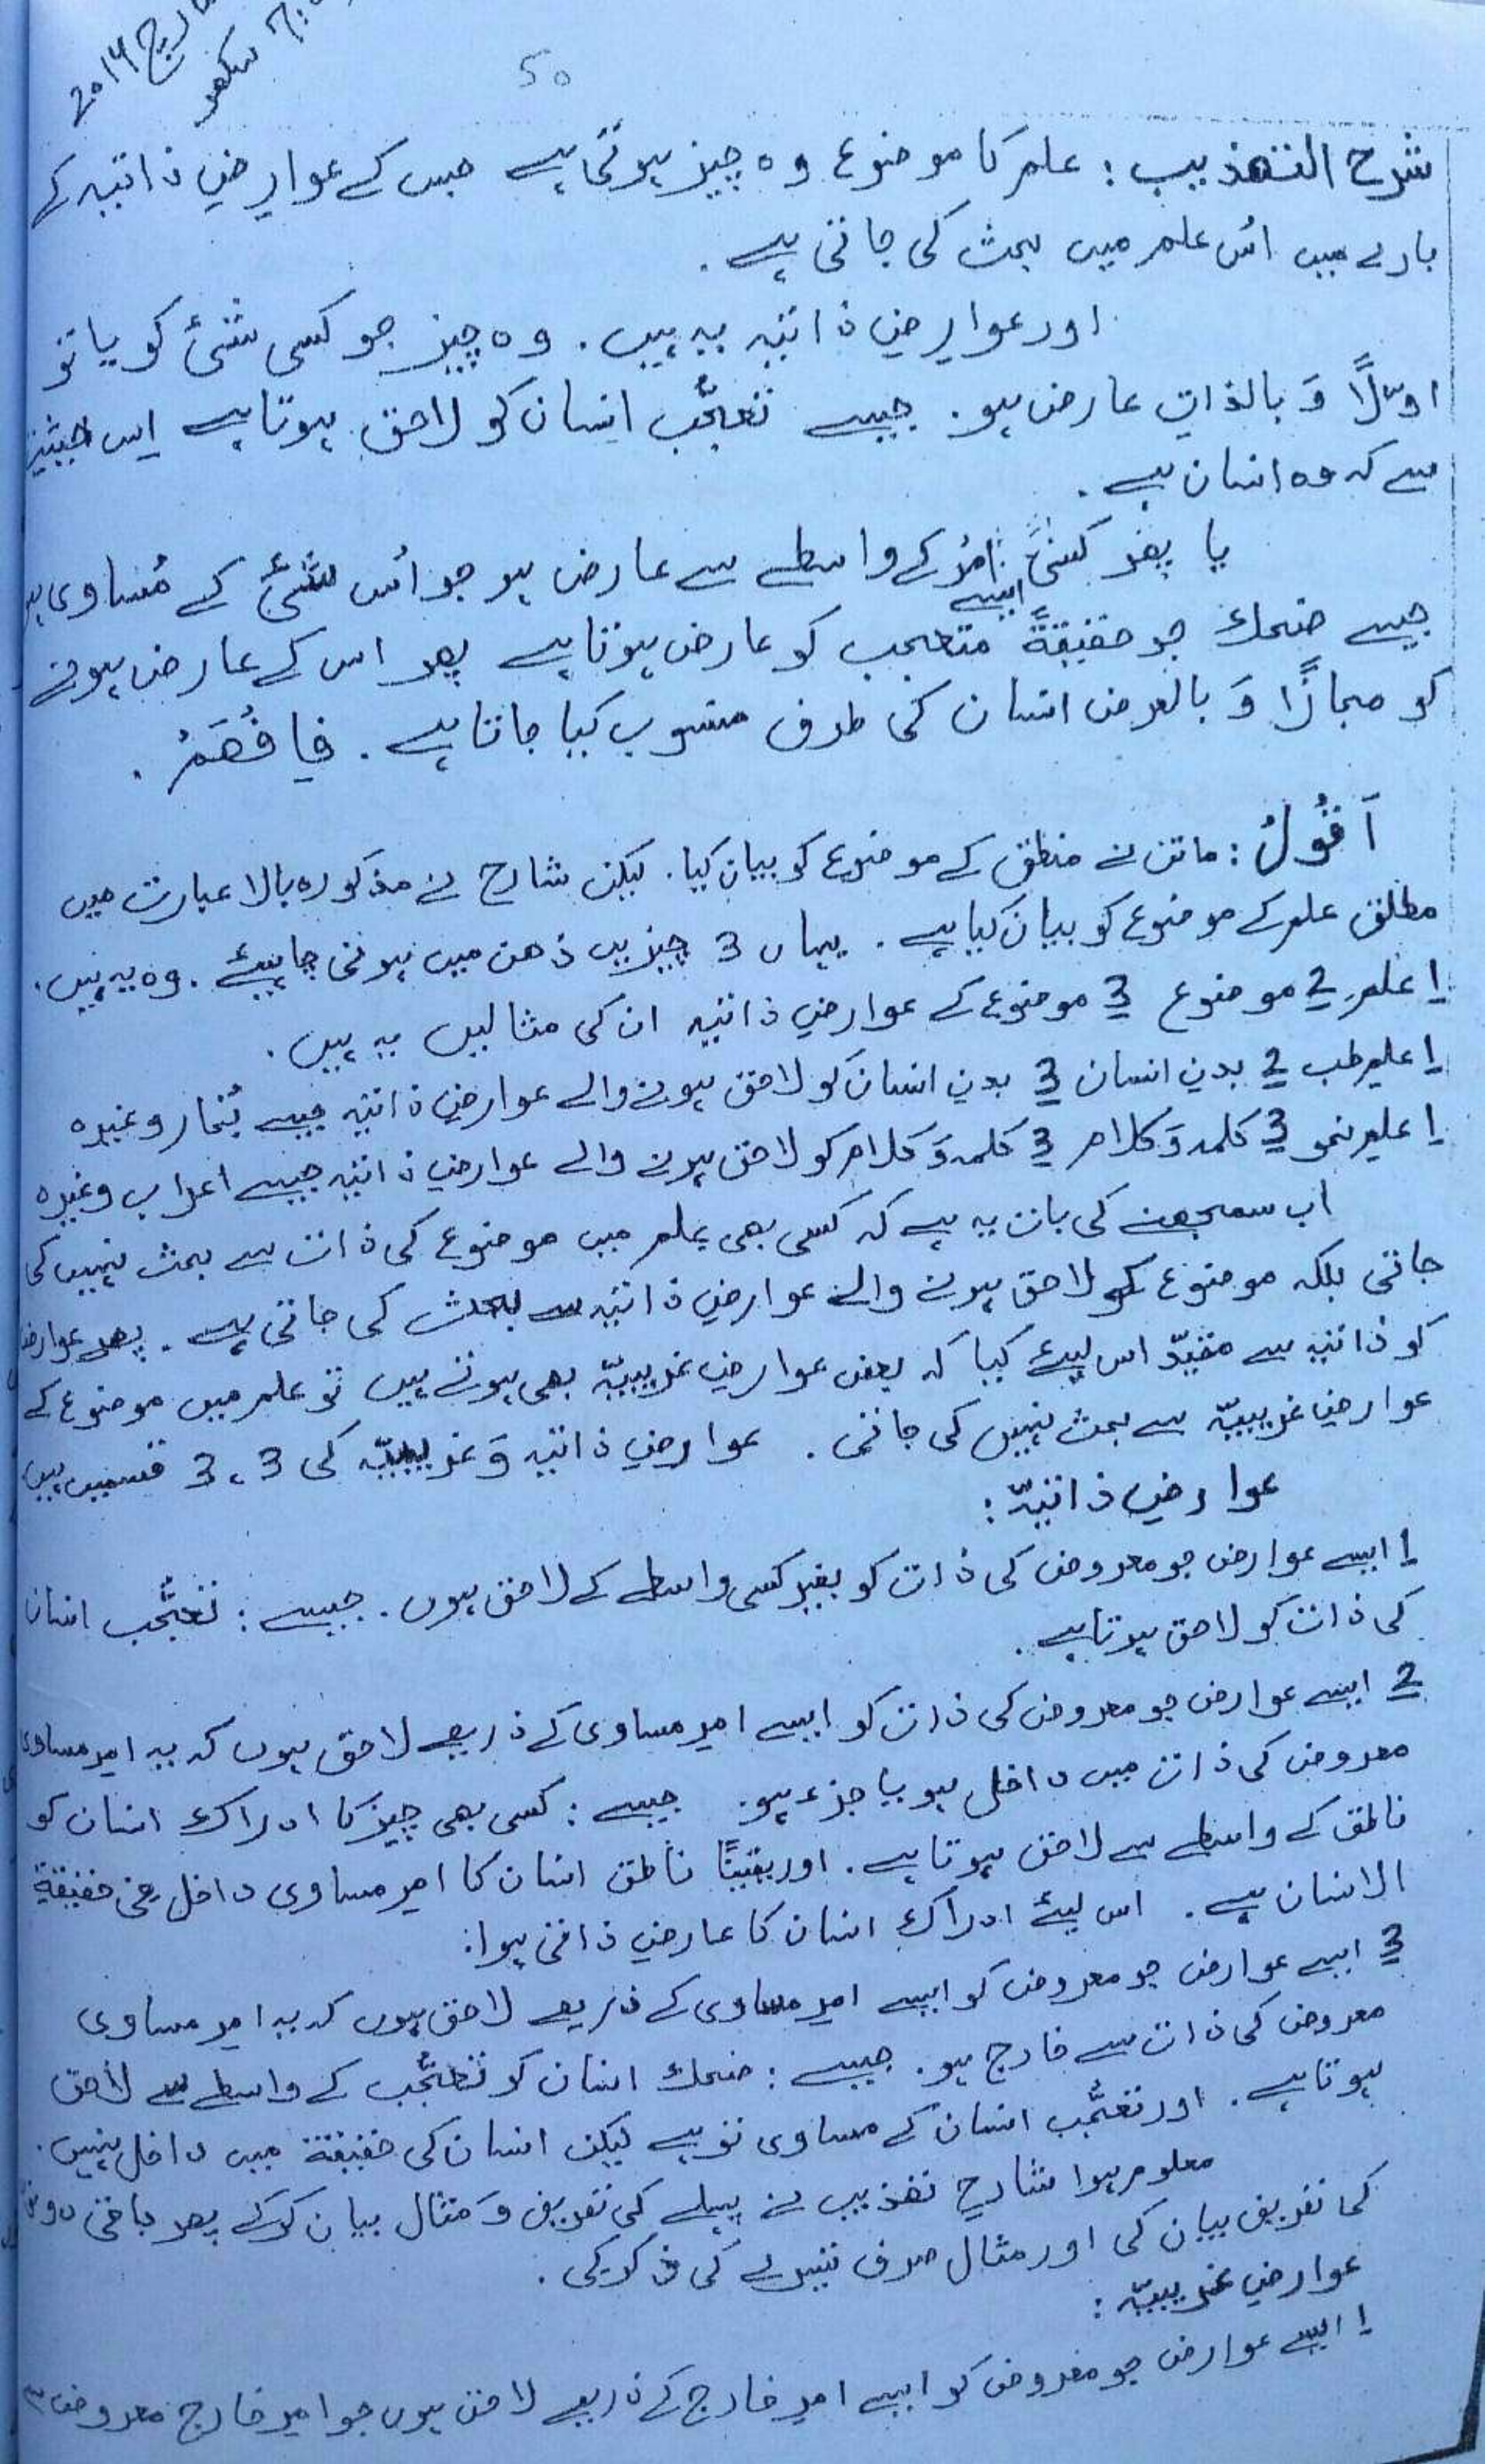 مارچ 2014
سکھر
50
شرح التهذيب : علم کا موضوع وہ چیز ہوتی ہے جس کے عوارضِ ذاتیہ کے
بارے میں اُس علم میں بحث کی جاتی ہے .
اور عوارضِ ذاتیہ یہ ہیں . وہ چیز جو کسی شئ کو یا تو
اوّلًا وَ بالذات عارض ہو . جیسے تَعجُّب انسان کو لاحق ہوتا ہے اِس حیثیت
سے کہ وہ انسان ہے .
یا پھر کسی ایسے اَمْر کے واسطے سے عارض ہو جو اُس شئ کے مُساوی ہو
جیسے ضحك جو حقیقةً متعجب کو عارض ہوتا ہے پھر اس کے عارض ہونے
کو مجازًا وَ بالعرض انسان کی طرف منسوب کیا جاتا ہے . فَافْهَمْ .
اَقُوْلُ : ماتن نے منطق کے موضوع کو بیان کیا . لیکن شارح نے مذکورہ بالا عبارت میں
مطلق علم کے موضوع کو بیان کیا ہے . یہاں 3 چیزیں ذھن میں ہونی چاہیئے . وہ یہ ہیں .
1 علم 2 موضوع 3 موضوع کے عوارضِ ذاتیہ ان کی مثالیں یہ ہیں .
1 علمِ طب 2 بدنِ انسان 3 بدنِ انسان کو لاحق ہونے والے عوارضِ ذاتیہ جیسے بُخار وغیرہ
1 علمِ نحو 3 کلمہ وَ کلام 3 کلمہ وَ کلام کو لاحق ہونے والے عوارضِ ذاتیہ جیسے اعراب وغیرہ
اب سمجھنے کی بات یہ ہے کہ کسی بھی علم میں موضوع کی ذات سے بحث نہیں کی
جاتی بلکہ موضوع کو لاحق ہونے والے عوارضِ ذاتیہ سے بحث کی جاتی ہے . پھر عوارض
کو ذاتیہ سے مقیّد اس لیئے کیا کہ بعض عوارضِ غریبیّہ بھی ہوتے ہیں تو علم میں موضوع کے
عوارضِ غریبیّہ سے بحث نہیں کی جاتی . عوارضِ ذاتیہ وَ غریبیّہ کی 3 ، 3 قسمیں ہیں
عوارضِ ذاتیّہ :
1 ایسے عوارض جو معروض کی ذات کو بغیر کسی واسطے کے لاحق ہوں . جیسے : تَعَجُّب انسان
کی ذات کو لاحق ہوتا ہے .
2 ایسے عوارض جو معروض کی ذات کو ایسے امرِ مساوی کے ذریعے لاحق ہوں کہ یہ امرِ مساوی
معروض کی ذات میں داخل ہو یا جزء ہو . جیسے : کسی بھی چیز کا ادراك انسان کو
ناطق کے واسطے سے لاحق ہوتا ہے . اور یقینًا ناطق انسان کا امرِ مساوی داخل فی حقیقة
الانسان ہے . اس لیئے ادراك انسان کا عارضِ ذاتی ہوا :
3 ایسے عوارض جو معروض کو ایسے امرِ مساوی کے ذریعے لاحق ہوں کہ یہ امرِ مساوی
معروض کی ذات سے خارج ہو . جیسے : ضحك انسان کو تَعَجُّب کے واسطے سے لاحق
ہوتا ہے . اور تَعَجُّب انسان کے مساوی تو ہے لیکن انسان کی حقیقة میں داخل نہیں .
معلوم ہوا شارحِ تھذیب نے پہلے کی تعریف وَ مثال بیان کرکے پھر باقی دونوں
کی تعریف بیان کی اور مثال صرف تیسرے کی ذکر کی .
عوارضِ غریبیّہ :
1 ایسے عوارض جو معروض کو ایسے امرِ خارج کے ذریعے لاحق ہوں جو امرِ خارج معروض سے